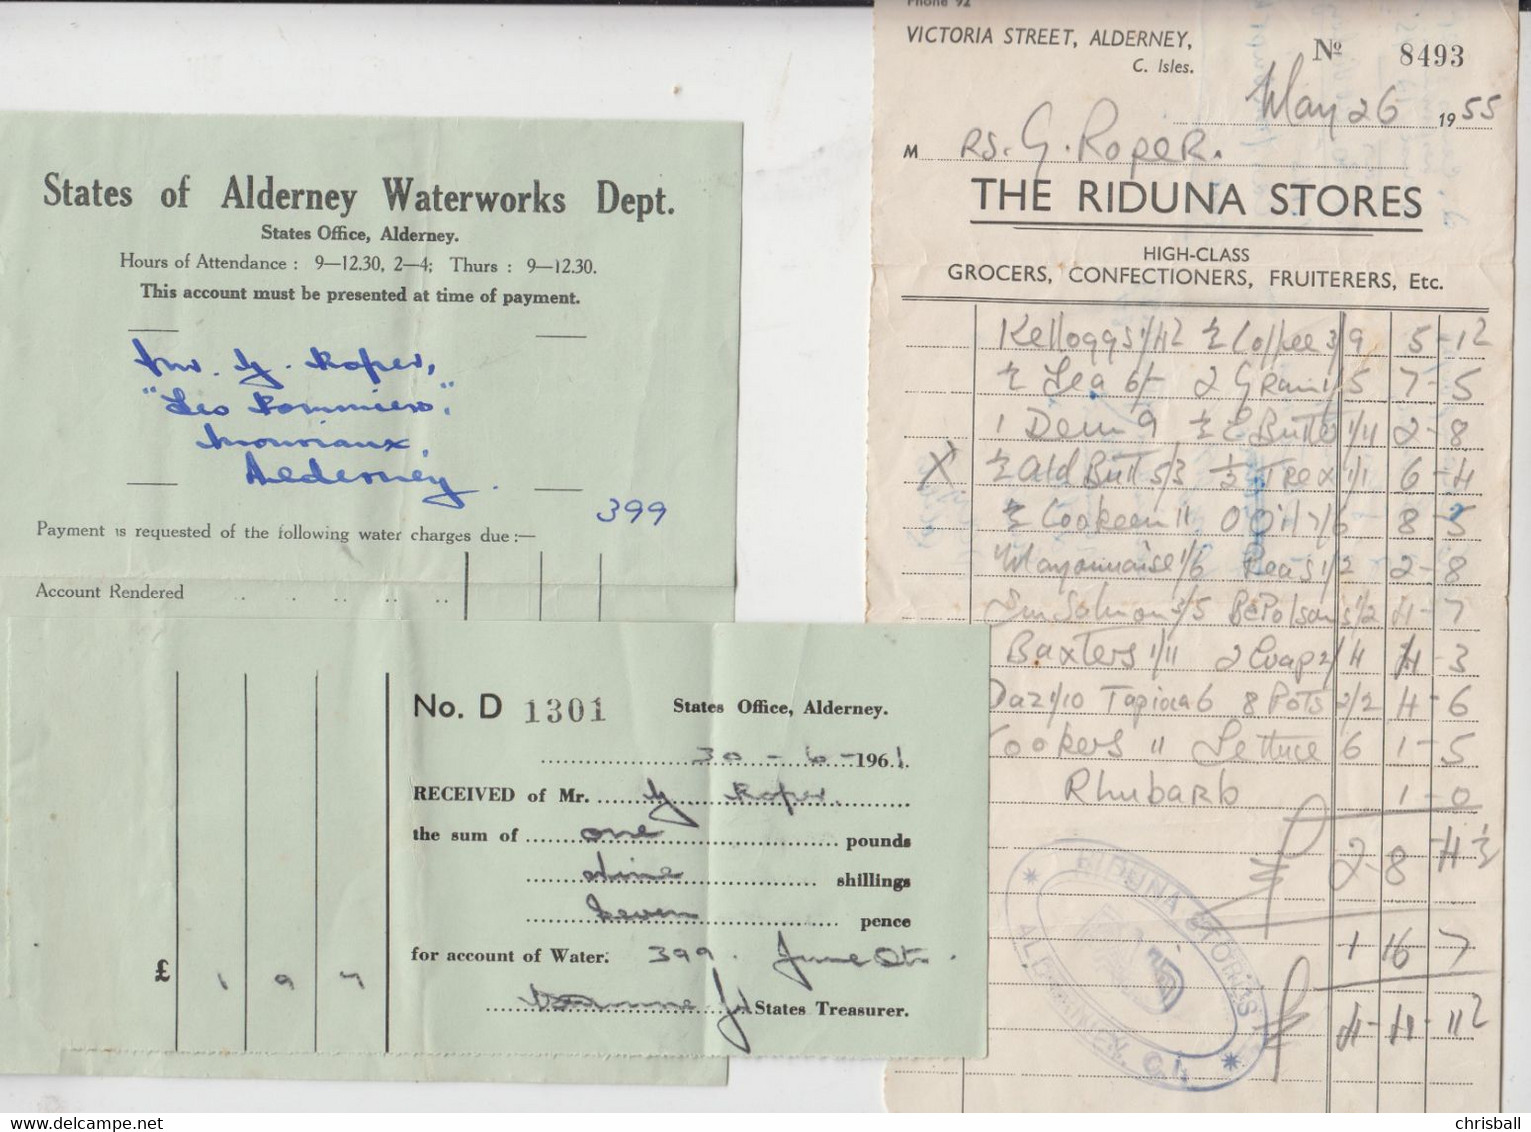 States of Alderney Waterworks Dept.
States Office, Alderney.
Hours of Attendance : 9—12.30, 2—4; Thurs : 9—12.30.
This account must be presented at time of payment.
Mr. G. Roper,
Alderney.
399
Payment is requested of the following water charges due :—
Account Rendered .. .. .. ..
No. D 1301 States Office, Alderney.
30-6-1961.
RECEIVED of Mr. G Roper.
the sum of one pounds
nine shillings
seven pence
for account of Water. 399. June Qtr.
£ 1 9 7
States Treasurer.
Phone 92
VICTORIA STREET, ALDERNEY,
C. Isles.
No 8493
May 26 1955
M rs. G. Roper.
THE RIDUNA STORES
HIGH-CLASS
GROCERS, CONFECTIONERS, FRUITERERS, Etc.
Kelloggs ½ Coffee 3/9 5-1½
½ Tea 6/- 2 1/5 7-5
1 9 1/4 2-8
X 5/3 ½ Trex 1/1 6-4
½ Cookeen 11 Oil 7/6 8-5
Mayonnaise 1/6 Peas 1/2 2-8
Salmon 3/5 1/2 4-7
Baxters 1/11 2 Evap 2/4 4-3
Daz 1/10 Tapioca 6 8 Pots 2/2 4-6
Cookers 11 Lettuce 6 1-5
Rhubarb 1-0
2-8-4½
1 16 7
4-4-11½
RIDUNA STORES
ALDERNEY, C.I.
chrisball